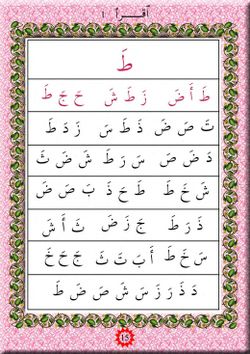 اقرأ ١
طَ
طَ أَ ضَ زَ طَ شَ حَ جَ طَ
تَ صَ ضَ ذَ طَ سَ زَ دَ طَ
دَ ضَ صَ سَ رَ طَ شَ ضَ ثَ
شَ خَ طَ طَ حَ ذَ بَ صَ ضَ
ذَ رَ طَ جَ زَ ضَ ثَ أَ شَ
سَ خَ طَ أَ بَ تَ ثَ جَ حَ خَ
دَ ذَ رَ زَ سَ شَ صَ ضَ طَ